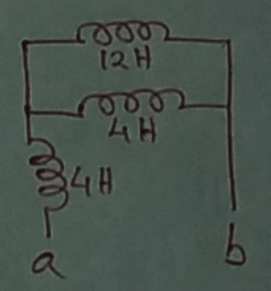 12H
4H
4H
a
b